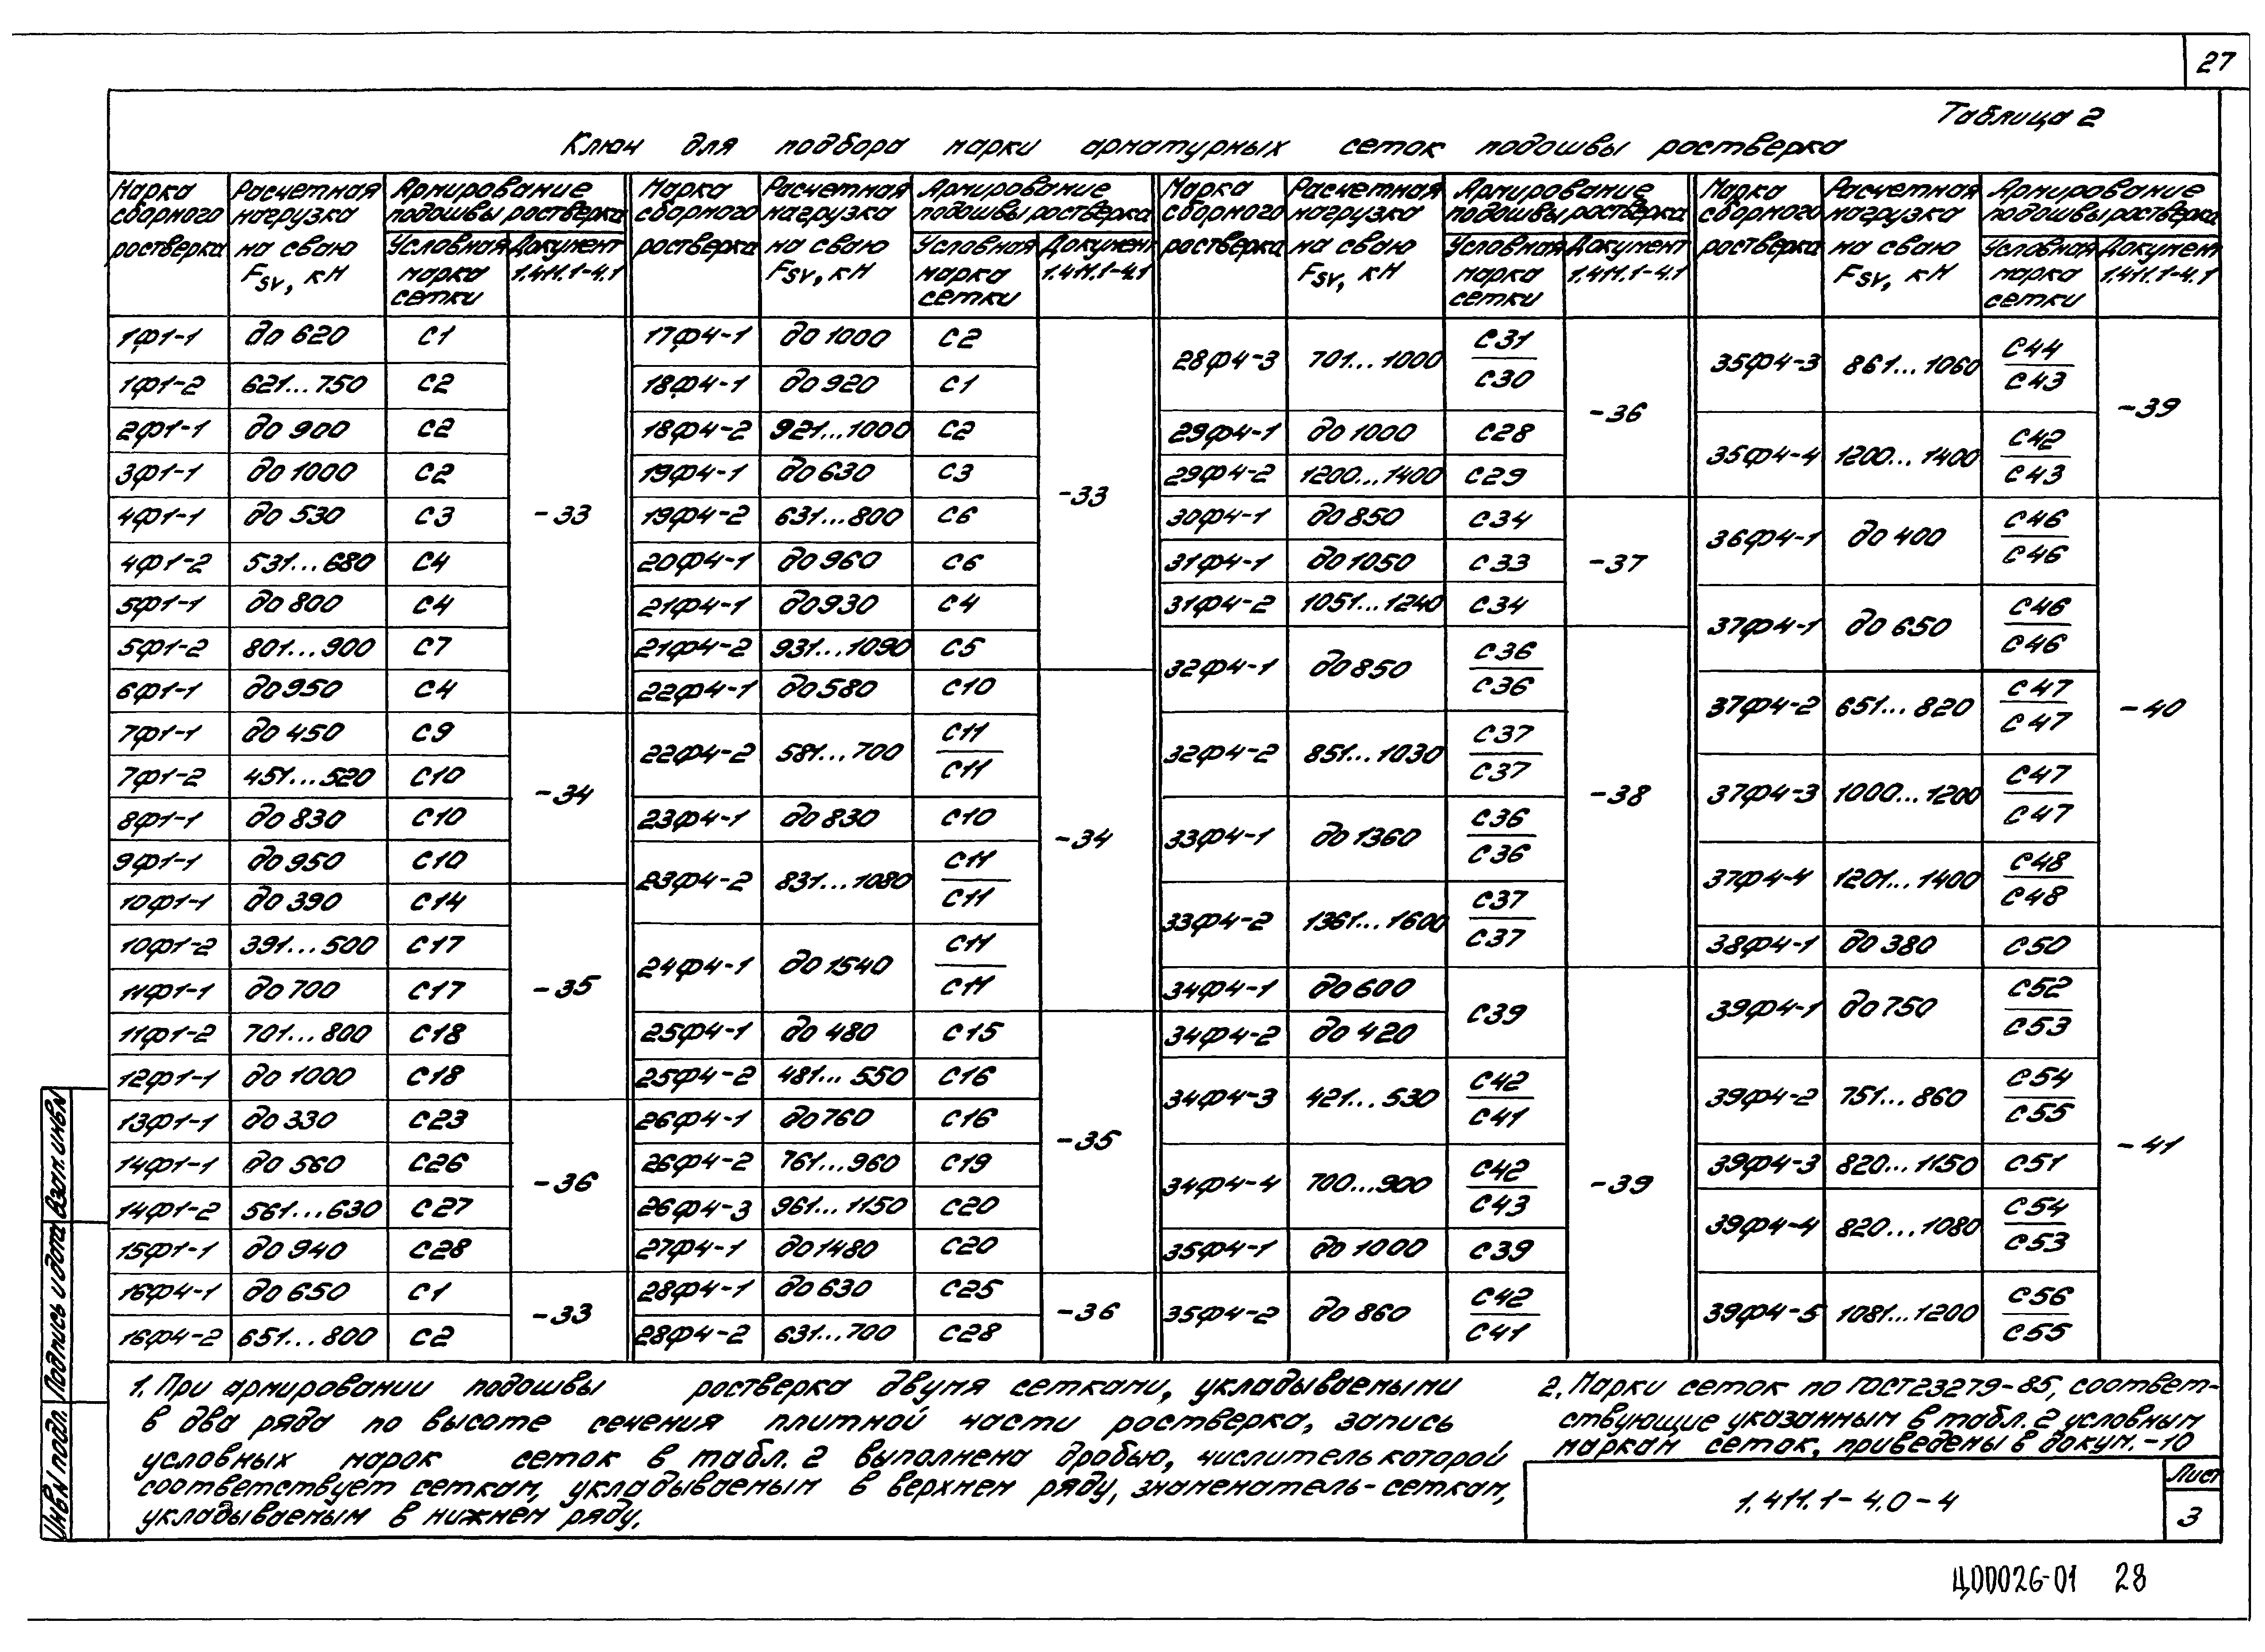 27
Таблица 2
Ключ для подбора марки арматурных сеток подошвы ростверка
Марка сборного ростверка | Расчетная нагрузка на сваю Fsv, кН | Армирование подошвы ростверка | Условная марка сетки | Документ 1.411.1-4.1
1Ф1-1 до 620 С1
1Ф1-2 621...750 С2
2Ф1-1 до 900 С2
3Ф1-1 до 1000 С2
4Ф1-1 до 530 С3 -33
4Ф1-2 531...680 С4
5Ф1-1 до 800 С4
5Ф1-2 801...900 С7
6Ф1-1 до 950 С4
7Ф1-1 до 450 С9
7Ф1-2 451...520 С10 -34
8Ф1-1 до 830 С10
9Ф1-1 до 950 С10
10Ф1-1 до 390 С14
10Ф1-2 391...500 С17
11Ф1-1 до 700 С17 -35
11Ф1-2 701...800 С18
12Ф1-1 до 1000 С18
13Ф1-1 до 330 С23
14Ф1-1 до 560 С26 -36
14Ф1-2 561...630 С27
15Ф1-1 до 940 С28
16Ф4-1 до 650 С1 -33
16Ф4-2 651...800 С2
Марка сборного ростверка | Расчетная нагрузка на сваю Fsv, кН | Армирование подошвы ростверка | Условная марка сетки | Документ 1.411.1-4.1
17Ф4-1 до 1000 С2
18Ф4-1 до 920 С1
18Ф4-2 921...1000 С2
19Ф4-1 до 630 С3 -33
19Ф4-2 631...800 С6
20Ф4-1 до 960 С6
21Ф4-1 до 930 С4
21Ф4-2 931...1090 С5
22Ф4-1 до 580 С10
22Ф4-2 581...700 С11 С11
23Ф4-1 до 830 С10 -34
23Ф4-2 831...1080 С11 С11
24Ф4-1 до 1540 С11 С11
25Ф4-1 до 480 С15
25Ф4-2 481...550 С16
26Ф4-1 до 760 С16 -35
26Ф4-2 761...960 С19
26Ф4-3 961...1150 С20
27Ф4-1 до 1480 С20
28Ф4-1 до 630 С25 -36
28Ф4-2 631...700 С28
Марка сборного ростверка | Расчетная нагрузка на сваю Fsv, кН | Армирование подошвы ростверка | Условная марка сетки | Документ 1.411.1-4.1
28Ф4-3 701...1000 С31 С30 -36
29Ф4-1 до 1000 С28
29Ф4-2 1200...1400 С29
30Ф4-1 до 850 С34
31Ф4-1 до 1050 С33 -37
31Ф4-2 1051...1240 С34
32Ф4-1 до 850 С36 С36
32Ф4-2 851...1030 С37 С37 -38
33Ф4-1 до 1360 С36 С36
33Ф4-2 1361...1600 С37 С37
34Ф4-1 до 600 С39
34Ф4-2 до 420
34Ф4-3 421...530 С42 С41
34Ф4-4 700...900 С42 С43 -39
35Ф4-1 до 1000 С39
35Ф4-2 до 860 С42 С41
Марка сборного ростверка | Расчетная нагрузка на сваю Fsv, кН | Армирование подошвы ростверка | Условная марка сетки | Документ 1.411.1-4.1
35Ф4-3 861...1060 С44 С43 -39
35Ф4-4 1200...1400 С42 С43
36Ф4-1 до 400 С46 С46
37Ф4-1 до 650 С46 С46
37Ф4-2 651...820 С47 С47 -40
37Ф4-3 1000...1200 С47 С47
37Ф4-4 1201...1400 С48 С48
38Ф4-1 до 380 С50
39Ф4-1 до 750 С52 С53
39Ф4-2 751...860 С54 С55 -41
39Ф4-3 820...1150 С51
39Ф4-4 820...1080 С54 С53
39Ф4-5 1081...1200 С56 С55
1. При армировании подошвы ростверка двумя сетками, укладываемыми
в два ряда по высоте сечения плитной части ростверка, запись
условных марок сеток в табл. 2 выполнена дробью, числитель которой
соответствует сеткам, укладываемым в верхнем ряду, знаменатель-сеткам,
укладываемым в нижнем ряду.
2. Марки сеток по ГОСТ 23279-85, соответ-
ствующие указанным в табл. 2 условным
маркам сеток, приведены в докум. -10
1.411.1-4.0-4
Лист
3
Инв.N подл. Подпись и дата Взам. инв.N
Ц00026-01 28